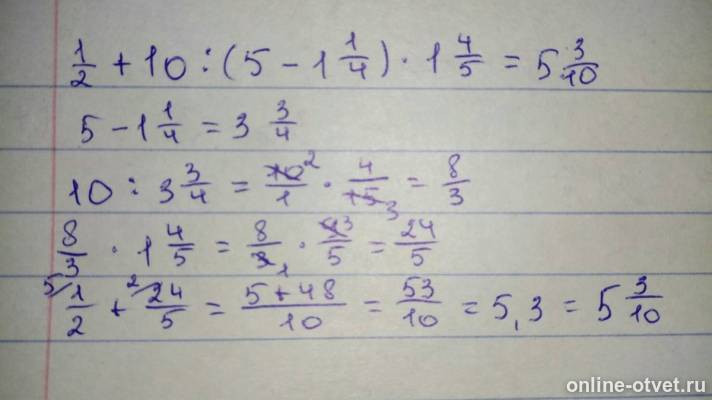 1/2 + 10 : (5 - 1 1/4) · 1 4/5 = 5 3/10
5 - 1 1/4 = 3 3/4
10 : 3 3/4 = 10 2/1 · 4/15 3 = 8/3
8/3 · 1 4/5 = 8/3 1 · 9 3/5 = 24/5
5/ 1/2 + 2/ 24/5 = 5 + 48/10 = 53/10 = 5,3 = 5 3/10
online-otvet.ru